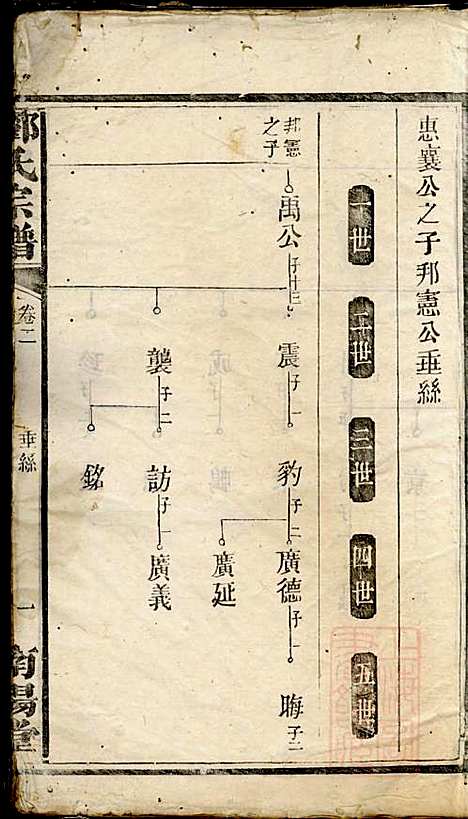 惠襄公之子邦憲公垂絲
一世
二世
三世
四世
五世
邦憲之子
禹公 子十三
震 子一
豹 子二
廣德 子一
晦 子二
廣延
襲 子二
訪 子一
廣義
銘
鄧氏宗譜
卷二
垂絲
一
南陽堂